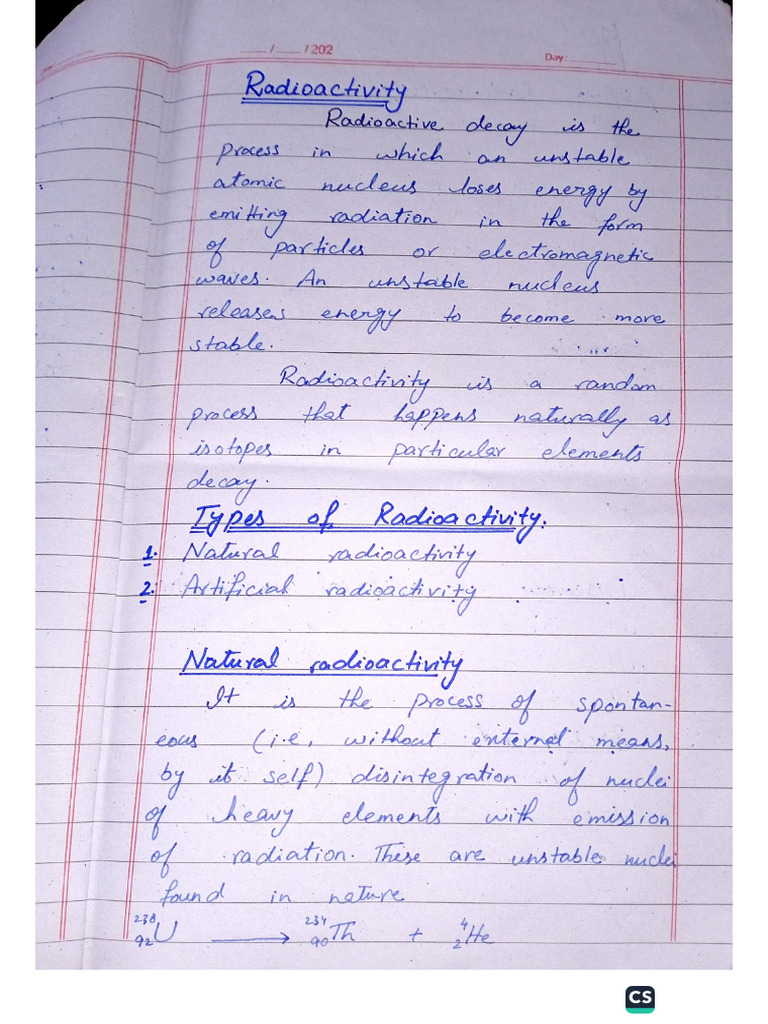 / / 202
Day:
Radioactivity
Radioactive decay is the
process in which an unstable
atomic nucleus loses energy by
emitting radiation in the form
of particles or electromagnetic
waves. An unstable nucleus
releases energy to become more
stable.
Radioactivity is a random
process that happens naturally as
isotopes in particular elements
decay.
Types of Radioactivity.
1. Natural radioactivity
2. Artificial radioactivity
Natural radioactivity
It is the process of spontan-
eous (i.e, without external means,
by it self) disintegration of nuclei
of heavy elements with emission
of radiation. These are unstable nuclei
found in nature
²³⁸₉₂U ⟶ ²³⁴₉₀Th + ⁴₂He
CS